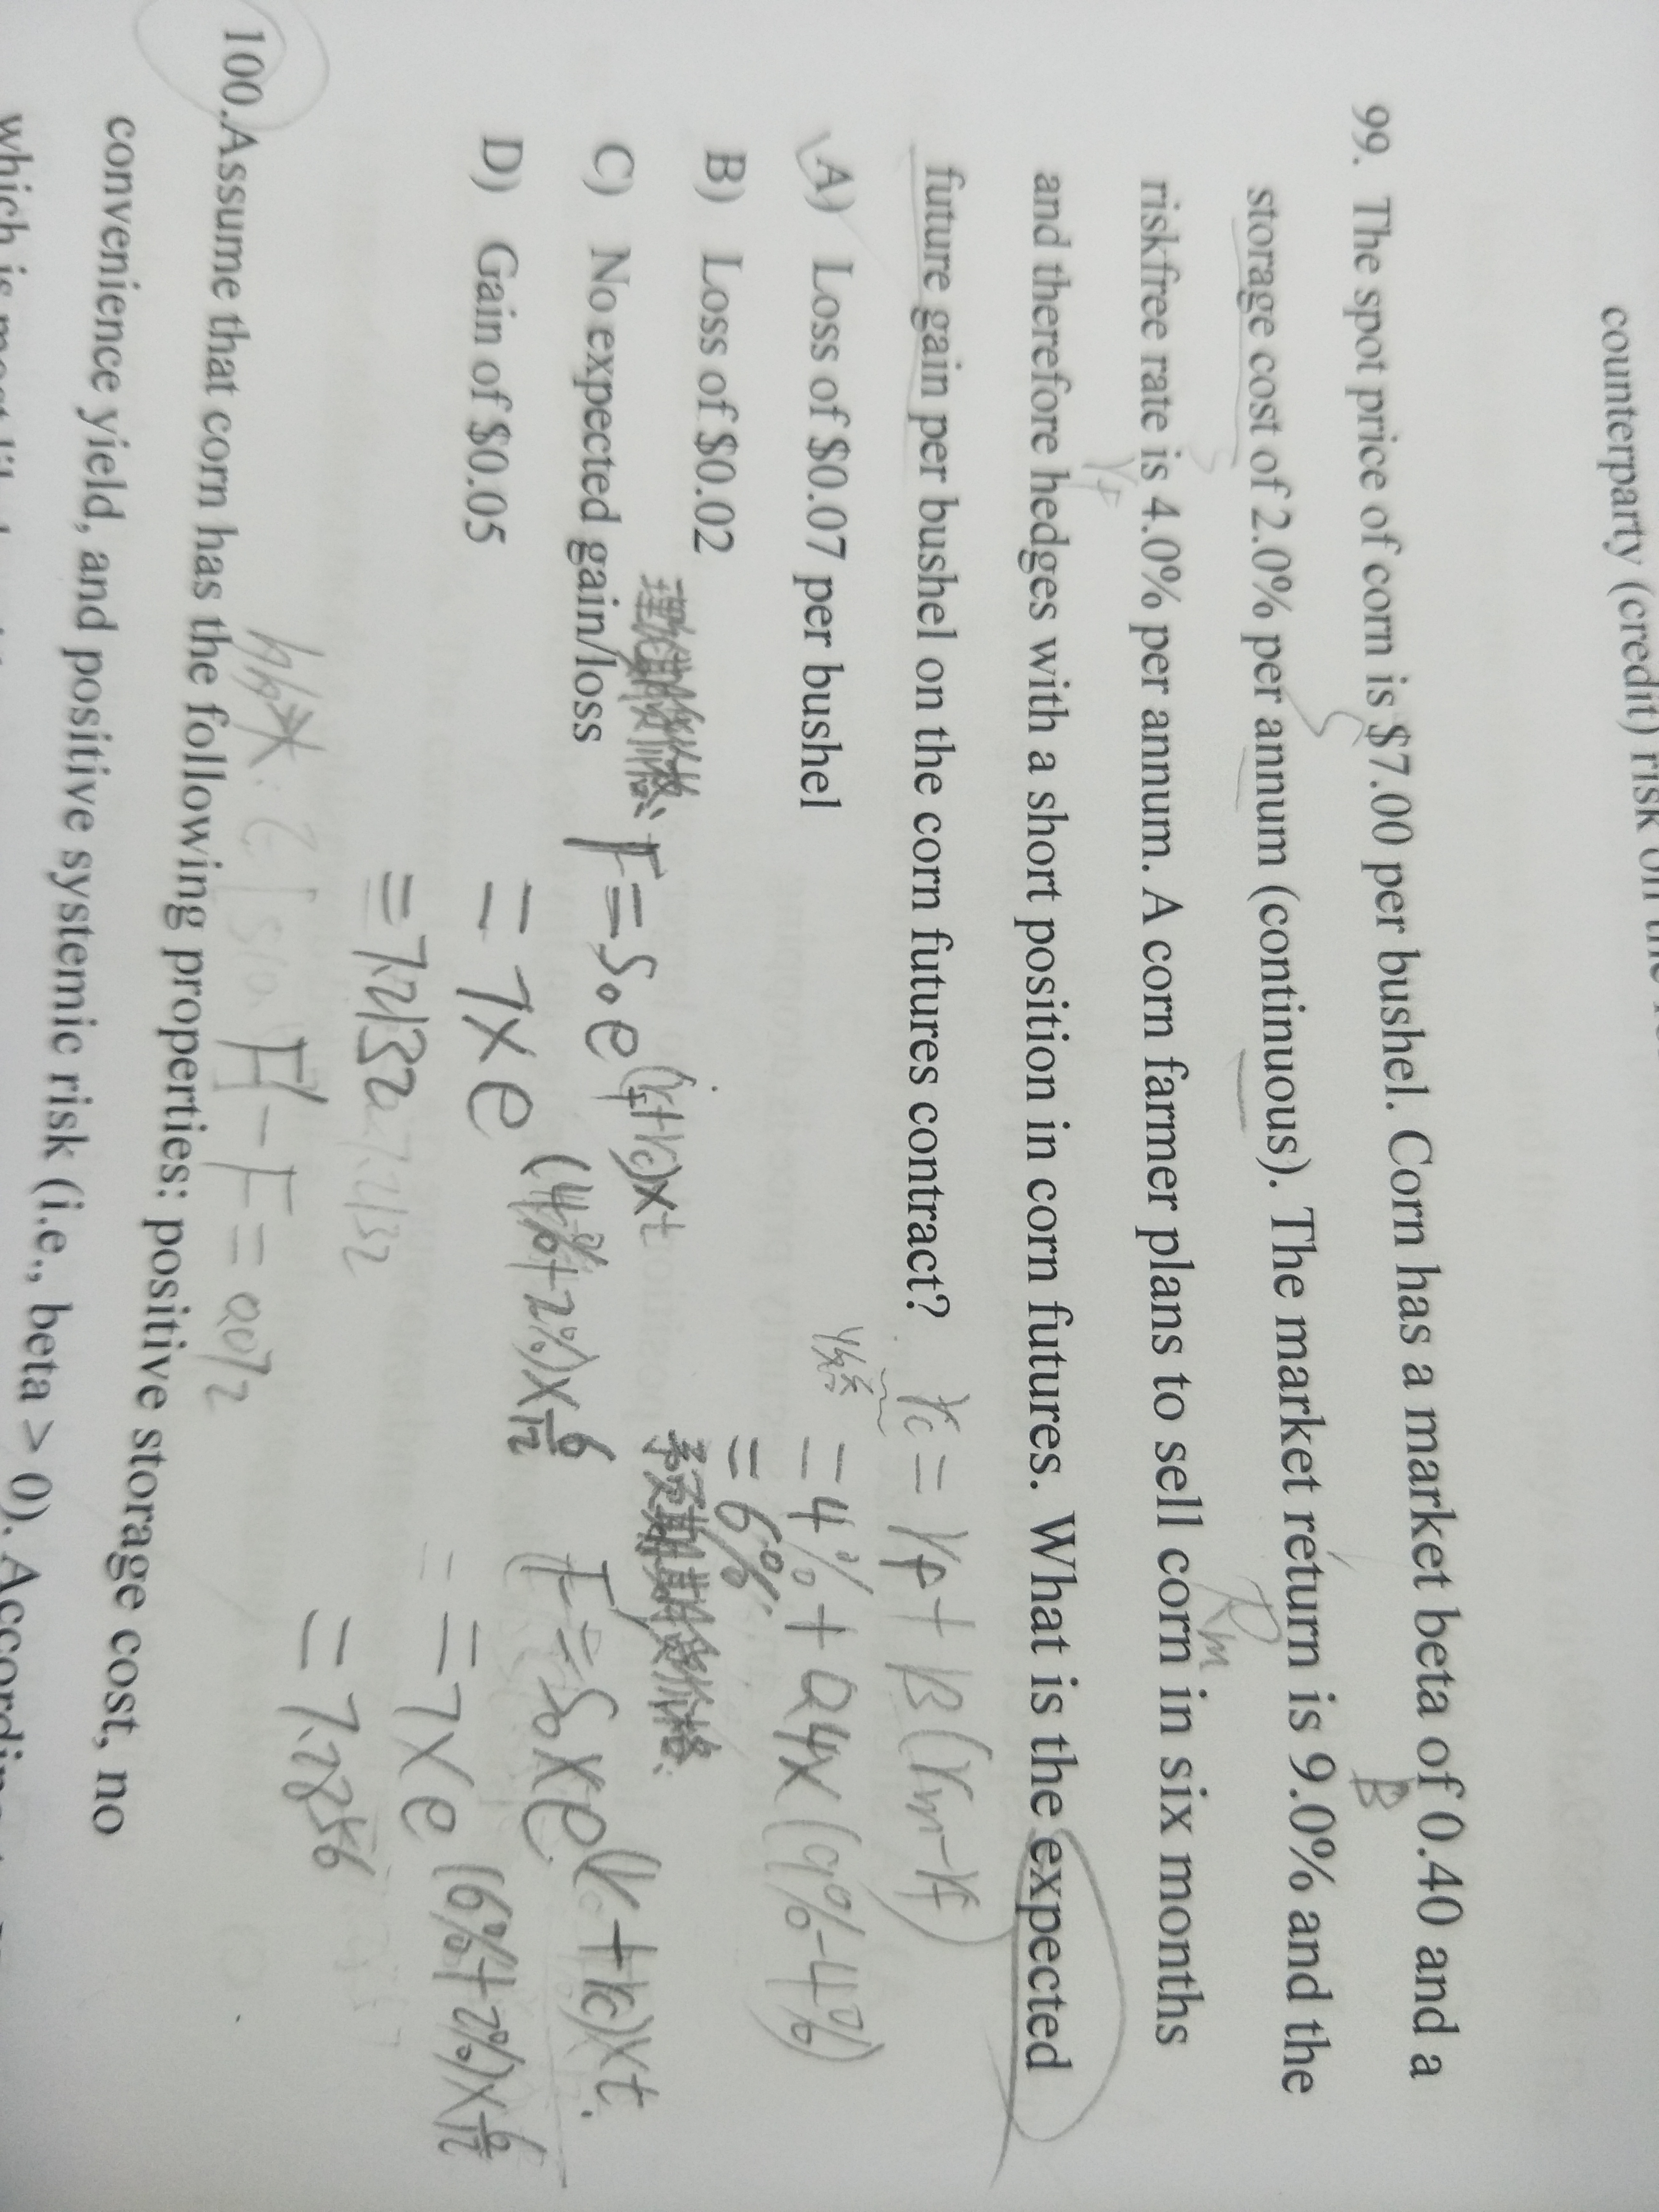 counterparty (credit) risk on the
99. The spot price of corn is $7.00 per bushel. Corn has a market beta of 0.40 and a
storage cost of 2.0% per annum (continuous). The market return is 9.0% and the
riskfree rate is 4.0% per annum. A corn farmer plans to sell corn in six months
and therefore hedges with a short position in corn futures. What is the expected
future gain per bushel on the corn futures contract?
A) Loss of $0.07 per bushel
B) Loss of $0.02
C) No expected gain/loss
D) Gain of $0.05
S
B
Rm
rf
rc = rf + B(rm-rf)
= 4% + 0.4×(9%-4%)
= 6%
理论期货价格:
F = S0 e (rf+rc)×t
= 7×e (4%+2%)×6/12
= 7.2132
预期期货价格:
F' = S0×e(r+rc)×t
= 7×e (6%+2%)×6/12
= 7.2856
F' - F = 0.072
100. Assume that corn has the following properties: positive storage cost, no
convenience yield, and positive systemic risk (i.e., beta > 0). According
which is most